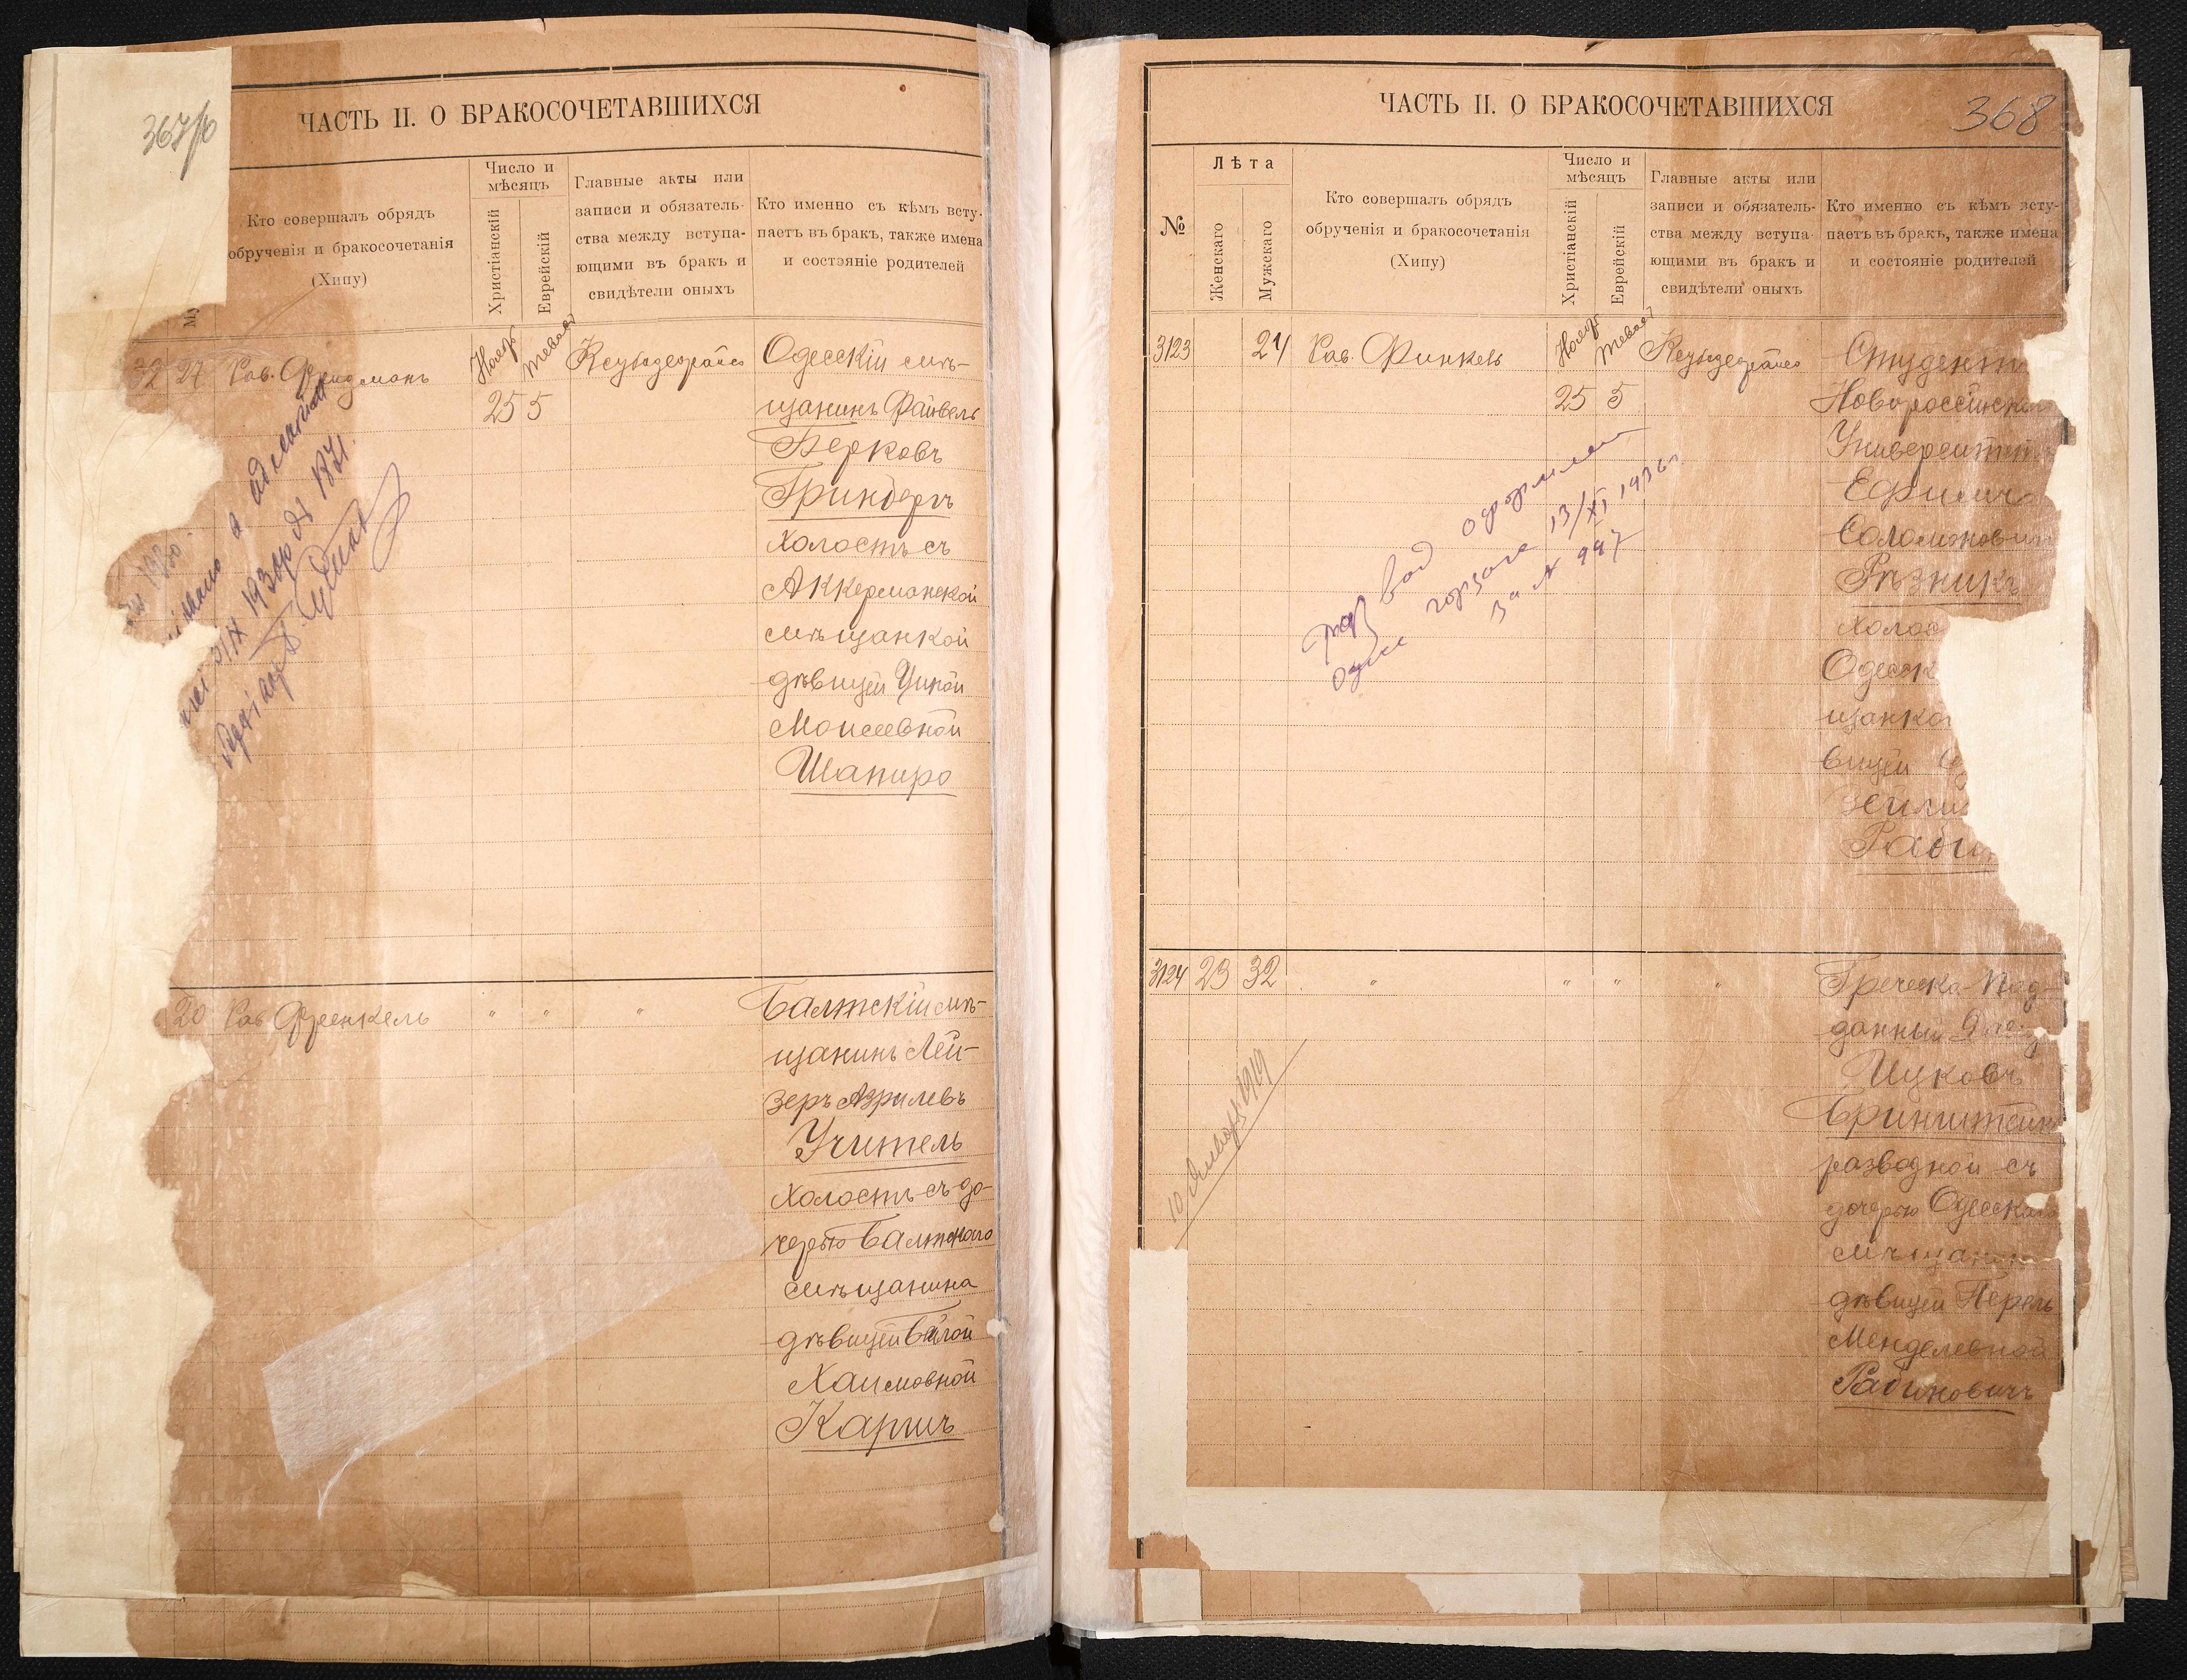 367/б
ЧАСТЬ II. О БРАКОСОЧЕТАВШИХСЯ
Кто совершалъ обрядъ
обрученія и бракосочетанія
(Хипу)
Число и
мѣсяцъ
Христіанскій
Еврейскій
Главные акты или
записи и обязатель-
ства между вступа-
ющими въ бракъ и
свидѣтели оныхъ
Кто именно съ кѣмъ всту-
паетъ въ бракъ, также имена
и состояніе родителей
Му
32 27 Рав. Фридманъ
Нояб
Тевает
25 5
Одесскій мѣ-
щанинъ Файвель
Берковъ
Гринбергъ
холостъ съ
Аккерманской
мѣщанкой
дѣвицей Ципой
Моисеевной
Шапиро
20 Рав. Френкель " " "
Балтскій мѣ-
щанинъ Лей-
зеръ Азрилевъ
Учитель
холостъ съ до-
черью Балтскаго
мѣщанина
дѣвицей Бейлой
Хаимовной
Карпъ
368
ЧАСТЬ II. О БРАКОСОЧЕТАВШИХСЯ
№
Лѣта
Женскаго
Мужскаго
Кто совершалъ обрядъ
обрученія и бракосочетанія
(Хипу)
Число и
мѣсяцъ
Христіанскій
Еврейскій
Главные акты или
записи и обязатель-
ства между вступа-
ющими въ бракъ и
свидѣтели оныхъ
Кто именно съ кѣмъ всту-
паетъ въ бракъ, также имена
и состояніе родителей
3123 24 Рав. Финкель
Нояб
Тевает
25 5
Студент
Новороссійска
Университет
Ефимъ
Соломонови
Рѣзникъ
холос
Одесск
щанко
вицей
Зейли
Раби
развод оформлен
Одесс горзагс 13/XI 1936 г.
за № 997
3124 23 32 " " " "
Греческо-под-
данный
Ицковъ
Бринштейн
разводной съ
дочерью Одесскаго
мѣщани
дѣвицей Перель
Менделевной
Рабиновичъ
10 Января 1919